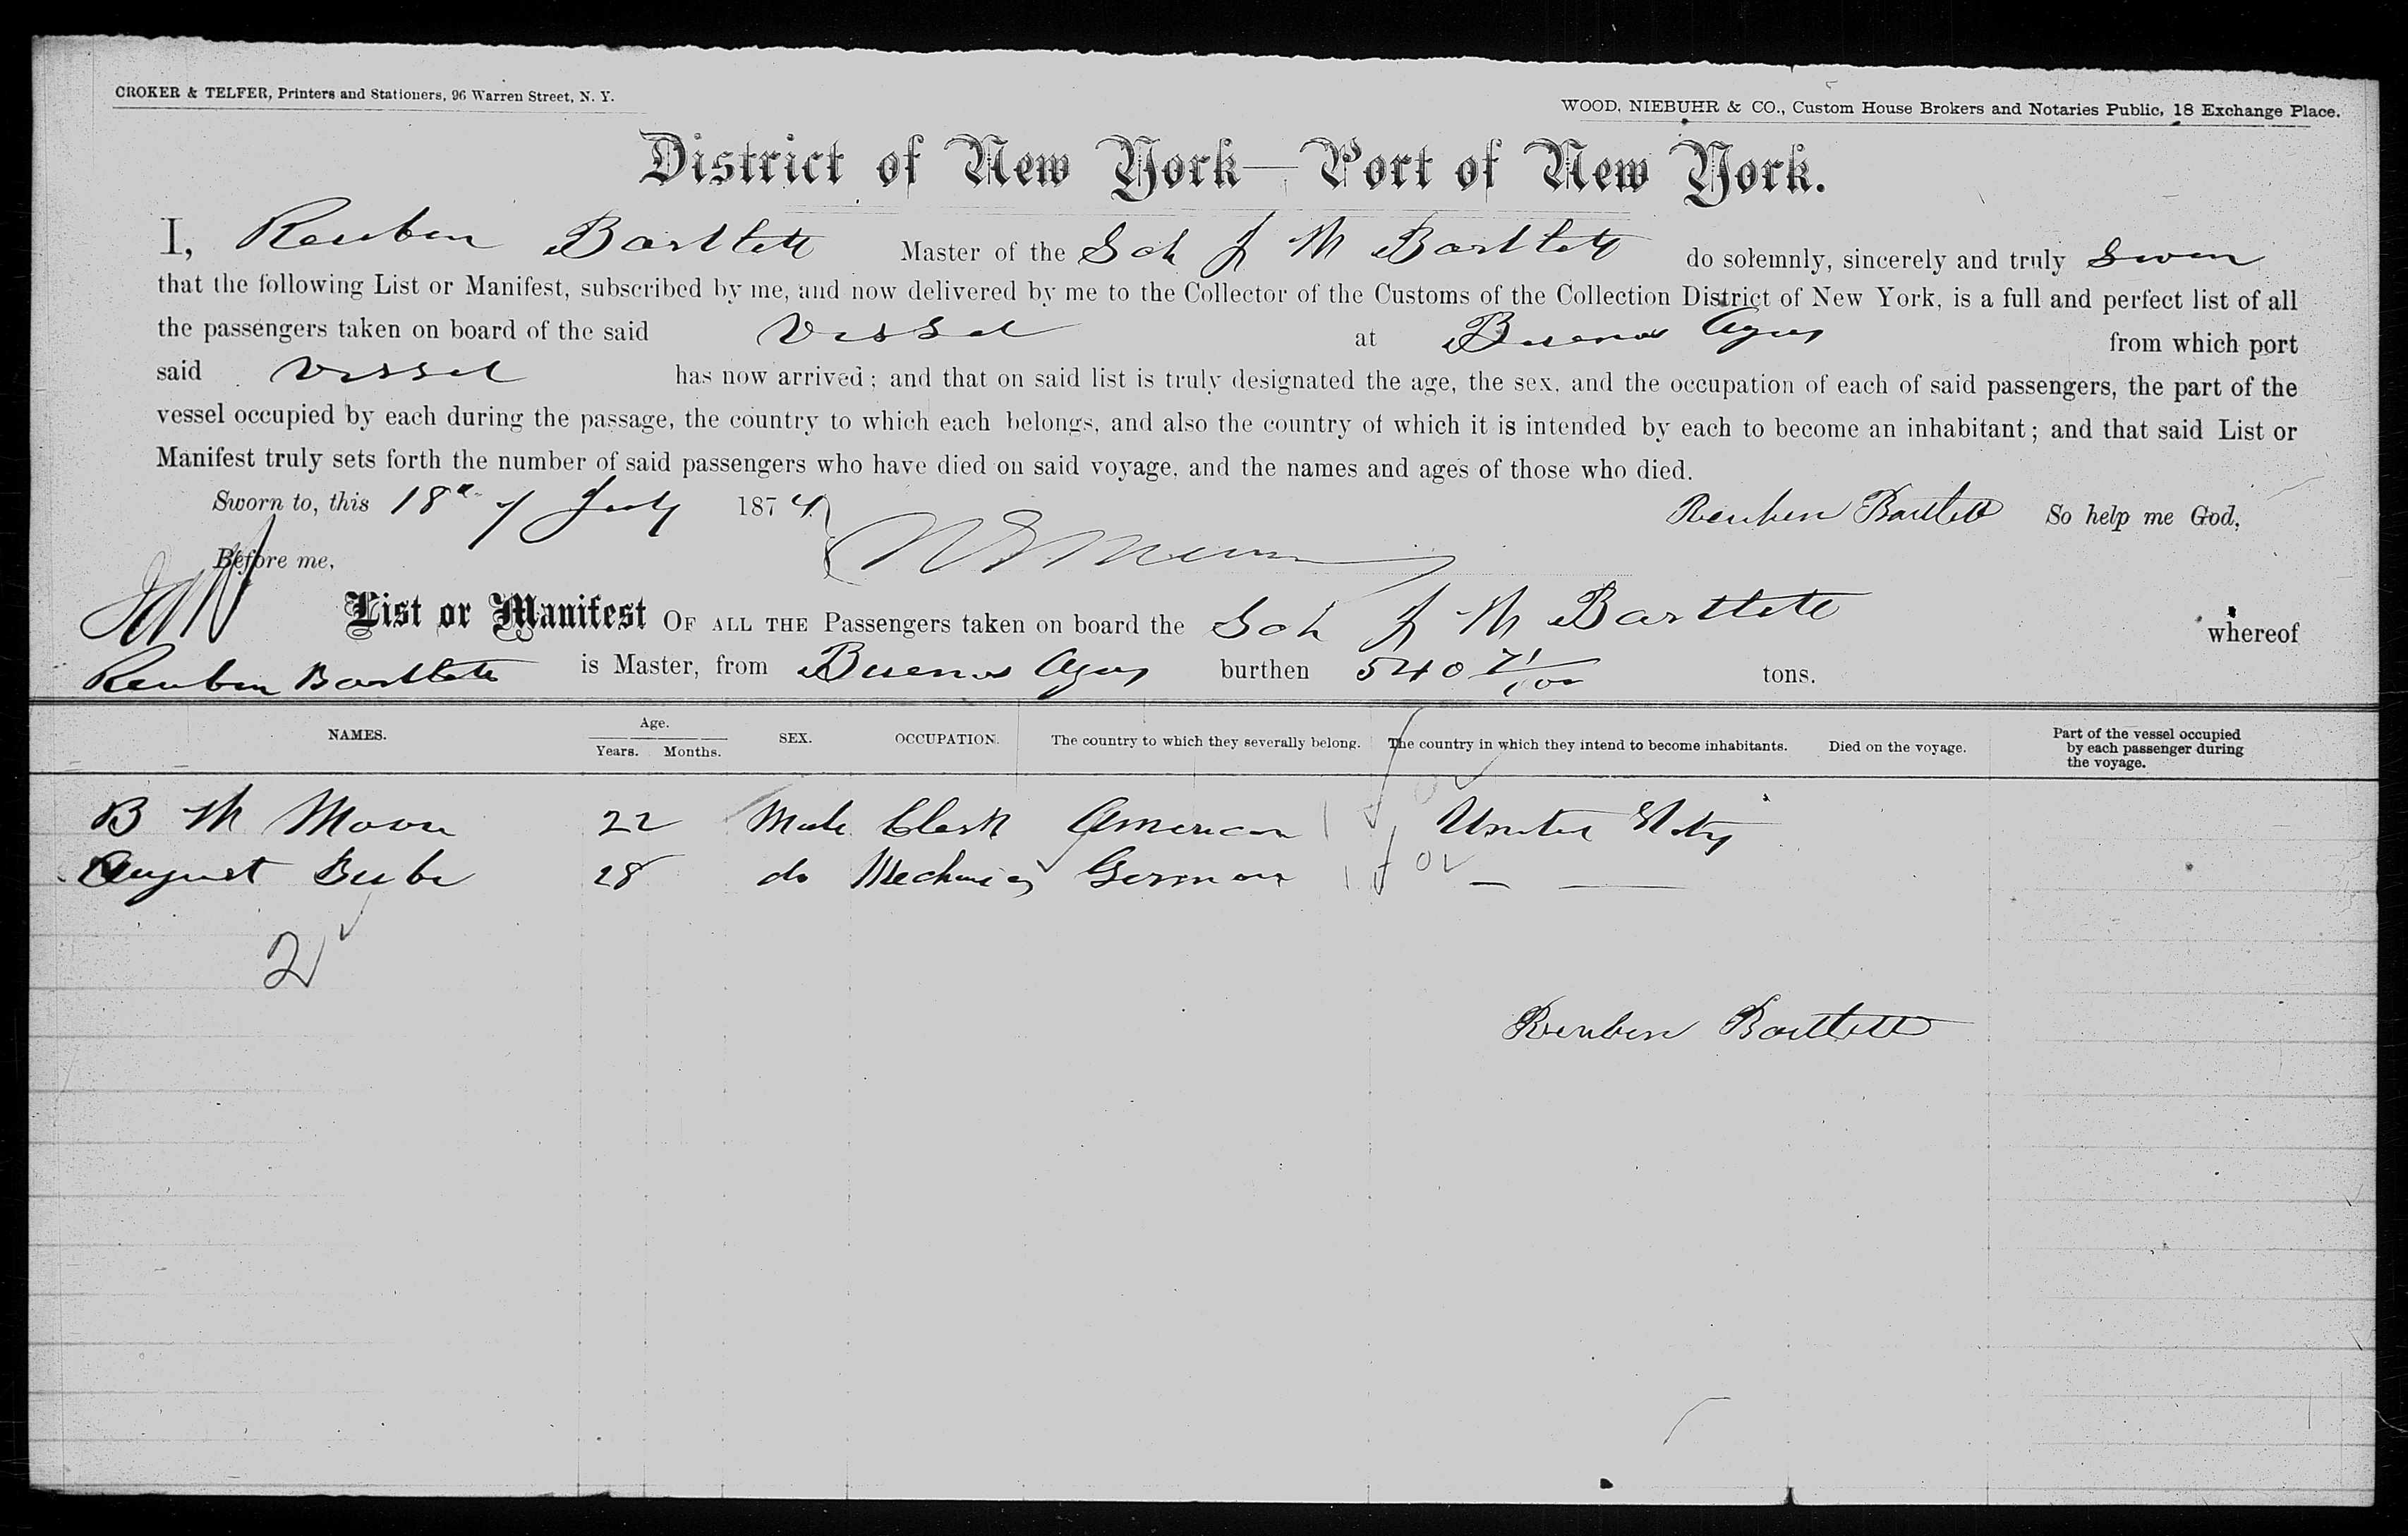 CROKER & TELFER, Printers and Stationers, 96 Warren Street, N. Y.
WOOD, NIEBUHR & CO., Custom House Brokers and Notaries Public, 18 Exchange Place.
District of New York—Port of New York.
I, Reuben Bartlett Master of the Sch J M Bartlett do solemnly, sincerely and truly Swear
that the following List or Manifest, subscribed by me, and now delivered by me to the Collector of the Customs of the Collection District of New York, is a full and perfect list of all
the passengers taken on board of the said Vessel at Buenos Ayres from which port
said Vessel has now arrived; and that on said list is truly designated the age, the sex, and the occupation of each of said passengers, the part of the
vessel occupied by each during the passage, the country to which each belongs, and also the country of which it is intended by each to become an inhabitant; and that said List or
Manifest truly sets forth the number of said passengers who have died on said voyage, and the names and ages of those who died.
Sworn to, this 18th of July 1874 Reuben Bartlett So help me God,
Before me,
List or Manifest OF ALL THE Passengers taken on board the Sch J M Bartlett whereof
Reuben Bartlett is Master, from Buenos Ayres burthen 540 71/100 tons.
NAMES. Age. Years. Months. SEX. OCCUPATION. The country to which they severally belong. The country in which they intend to become inhabitants. Died on the voyage. Part of the vessel occupied by each passenger during the voyage.
B M Moore 22 Male Clerk American United States
August 28 do Mechanic German — —
2
Reuben Bartlett